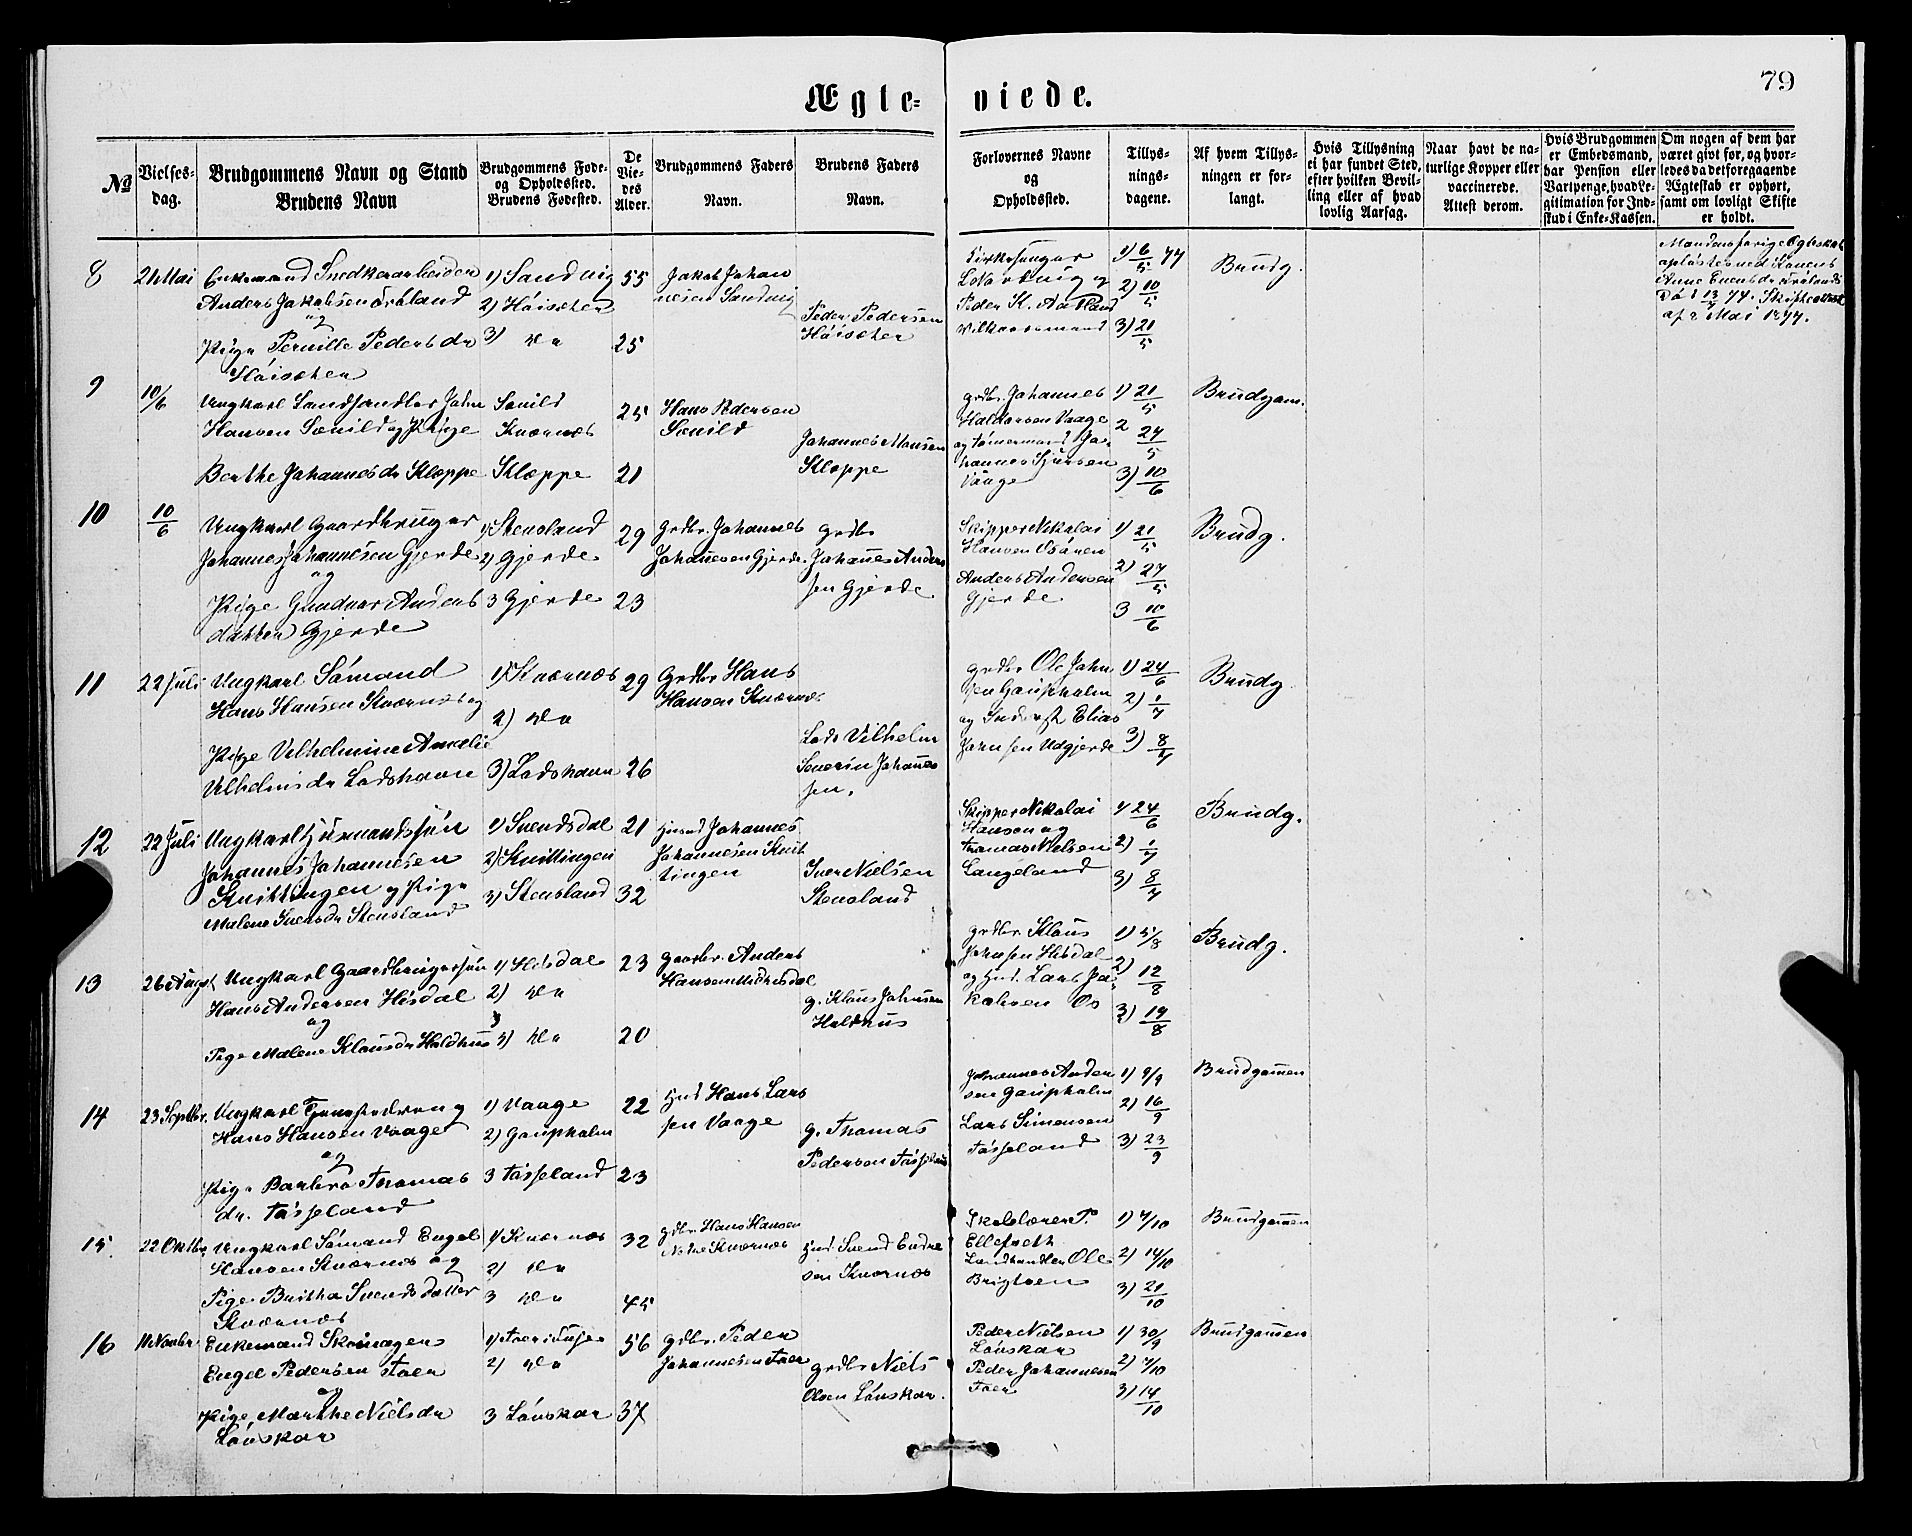 79
Ægte-
viede.
No
Vielses-
dag.
Brudgommens Navn og Stand
Brudens Navn
Brudgommens Føde-
og Opholdssted.
Brudens Fødested.
De
Vie-
des
Alder.
Brudgommens Faders
Navn.
Brudens Faders
Navn.
Forlovernes Navne
og
Opholdssted.
Tillys-
nings-
dagene.
Af hvem Tillys-
ningen er for-
langt.
Hvis Tillysning
ei har fundet Sted,
efter hvilken Bevil-
ling eller af hvad
lovlig Aarsag.
Naar havt de na-
turlige Kopper eller
vaccinerede.
Attest derom.
Hvis Brudgommen
er Embedsmand,
har Pension eller
Vartpenge, hvad Le-
gitimation for Ind-
skud i Enke-Kassen.
Om nogen af dem har
været givt før, og hvor-
ledes da det foregaaende
Ægteskab er ophørt,
samt om lovligt Skifte
er holdt.
8
21 Mai
Enkemand Snedkerarbeider
Anders Jakobsen
og
Pige Pernille Pedersdr
1) Sandvig
2)
3) do
55
25
Jakob Johan
nesen Sandvig
Peder Pedersen
Kirkesanger
Peder K.
1) 6/5 77
2) 10/5
3) 21/5
Brudg.
Mandens forige Ægteskab
opløst ved Konens
Død
af 2 Mai 1877.
9
10/6
Ungkarl Landhandler John
Hansen Sævild og Pige
Berthe Johannesdr Kleppe
Sævild
Knernæs
Kleppe
25
21
Hans Pedersen
Sævild
Johannes Monsen
Kleppe
grdbr. Johannes
Haldorsen Vaage
og Tømermand Jo-
hannes Sjursen
Vaage
1) 21/5
2 27/5
3) 10/6
Brudgom.
10
10/6
Ungkarl Gaardbruger
Johannes Johannesen Gjerde
og
Pige Gundvor Anders
datter Gjerde
1) Stensland
2) Gjerde
3 Gjerde
29
23
Grdbr. Johannes
Johanesen Gjerde
grdbr
Johanes Ander
sen Gjerde
Skipper Nikolai
Hansen
Anders Andersen
Gjerde
1) 21/5
2) 27/5
3 10/6
Brudg.
11
22 Juli
Ungkarl Sømand
Hans Hansen Knernæs og
Pige Vilhelmine Amalie
Vilhelmsdr Lodshavn
1) Knernæs
2) do
3) Lodshavn
29
26
Grdbr Hans
Hansen Knernæs
Lods Vilhelm
Severin Johanes
sen.
grdbr Ole John
sen Goupholm
og Inderst Elias
Johnsen Udgjerde
1) 24/6
2) 1/7
3) 8/7
Brudg
12
22 Juli
Ungkarl Husmandssøn
Johannes Johannesen
Knittingen og Pige
Malene Iversdr Stensland
1) Svendsdal
2) Knittingen
3) Stensland
21
32
Husmd Johannes
Johannesen Knit
tingen
Iver Nielsen
Stensland
Skipper Nikolai
Hansen og
Tomas Nielsen
Langeland
1) 24/6
2) 1/7
3) 8/7
Brudg.
13
26 August
Ungkarl Gaardbrugersøn
Hans Andersen Hisdal
og
Pige Malene Klausdr Holdhus
1) Hisdal
2) do
3) do
23
20
Gaardbr. Anders
Hansen
g. Klaus Johnsen
Holdhus
grdbr. Klaus
Johnsen Hisdal
og Hmd. Lars Ja-
kobsen Os
1) 5/8
2) 12/8
3) 19/8
Brudg.
14
23 Septbr.
Ungkarl
Hans Hansen Vaage
og
Pige Barbro Thomas
dr. Tøsseland
1) Vaage
2) Goupholm
3 Tøsseland
22
23
Hmd Hans Lars
sen Vaage
g. Thomas
Pedersen
Johannes Ander
sen Goupholm
Lars Simonsen
Tøsseland
1) 9/9
2) 16/9
3) 23/9
Brudgomen
15.
22 Oktbr.
Ungkarl Sømand Engel
Hansen Knernæs og
Pige Britha Svendsdatter
Knernæs
1) Knernæs
2) do
3 do
32
45
grdbr. Hans Hansen
Knernæs
Hmd. Svend Endre
sen Knernæs
Skolelærer P.
Ellefseth
Landhandler Ole
Brigtsen
1) 7/10
2) 14/10
3) 21/10
Brudgomen
16
Novbr.
Enkemand Skomager
Engel Pedersen Toer
og
Pige, Marthe Nielsdr
Lønskar
2) do
3 Lønskar
56
37
grdbr. Peder
Johannesen Toer
grdbr Niels
Olsen Lønskar.
Peder Nielsen
Lønskar
Peder Johannesen
Toer
1) 30/9
2) 7/10
3) 14/10
Brudgomen